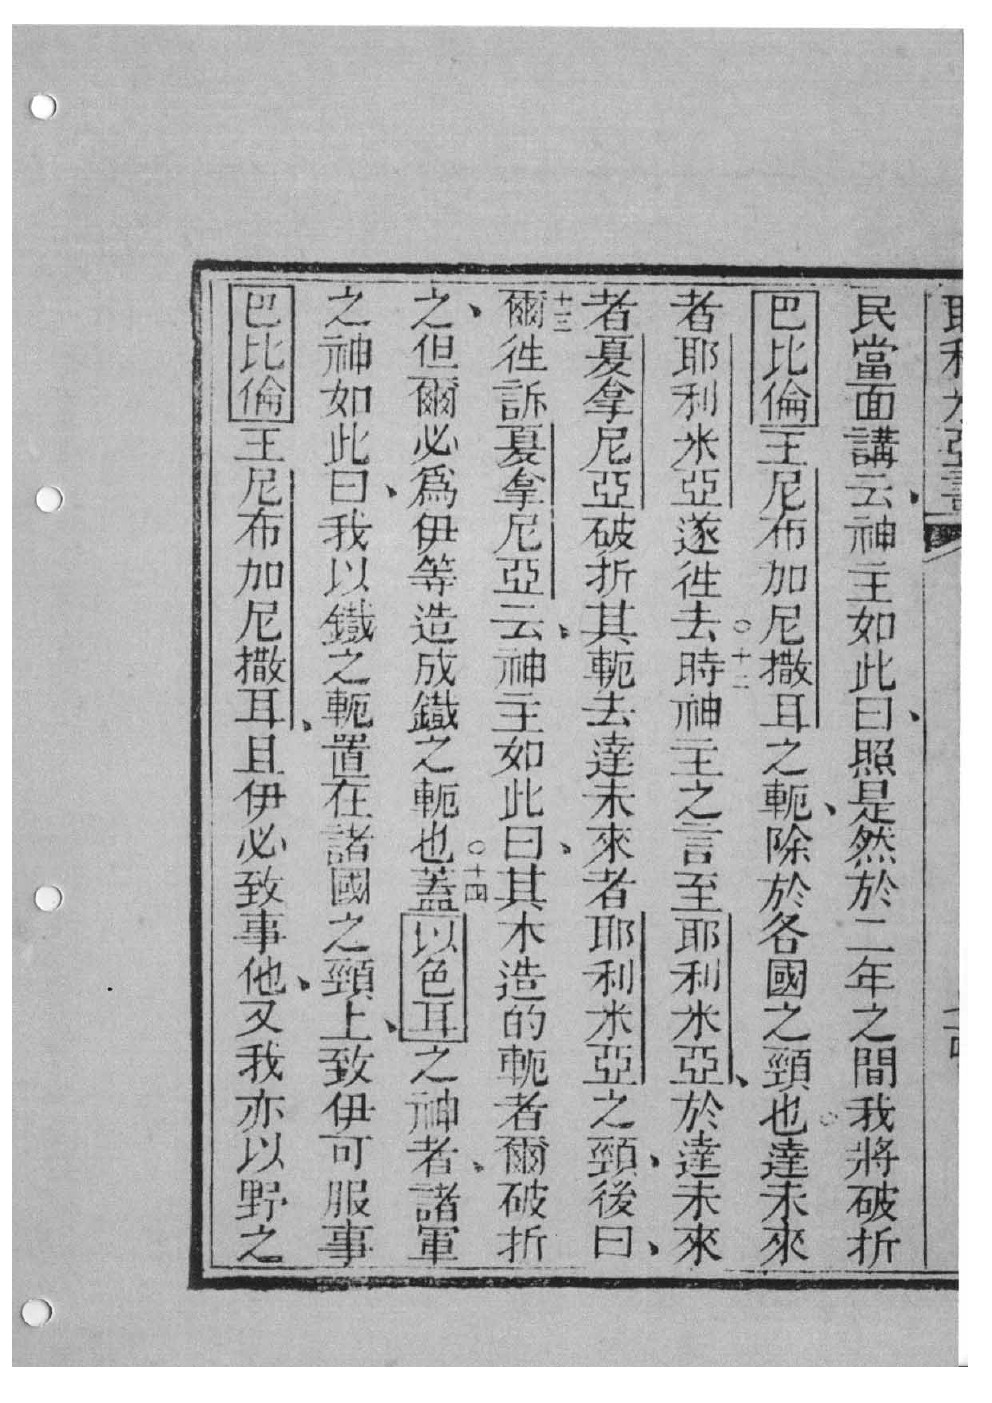 民當面講云、神主如此曰、照是然於二年之間我將破折
巴比倫王尼布加尼撒耳之軛、除於各國之頸也○達未來
者耶利米亞遂徃去○十二時神主之言至耶利米亞、於達未來
者夏拿尼亞破折其軛去達未來者耶利米亞之頸、後曰、
十三爾徃訴夏拿尼亞云、神主如此曰、其木造的軛者爾破折
之、但爾必為伊等造成鐵之軛也○十四蓋以色耳之神者、諸軍
之神如此曰、我以鐵之軛置在諸國之頸上、致伊可服事
巴比倫王尼布加尼撒耳、且伊必致事他、又我亦以野之